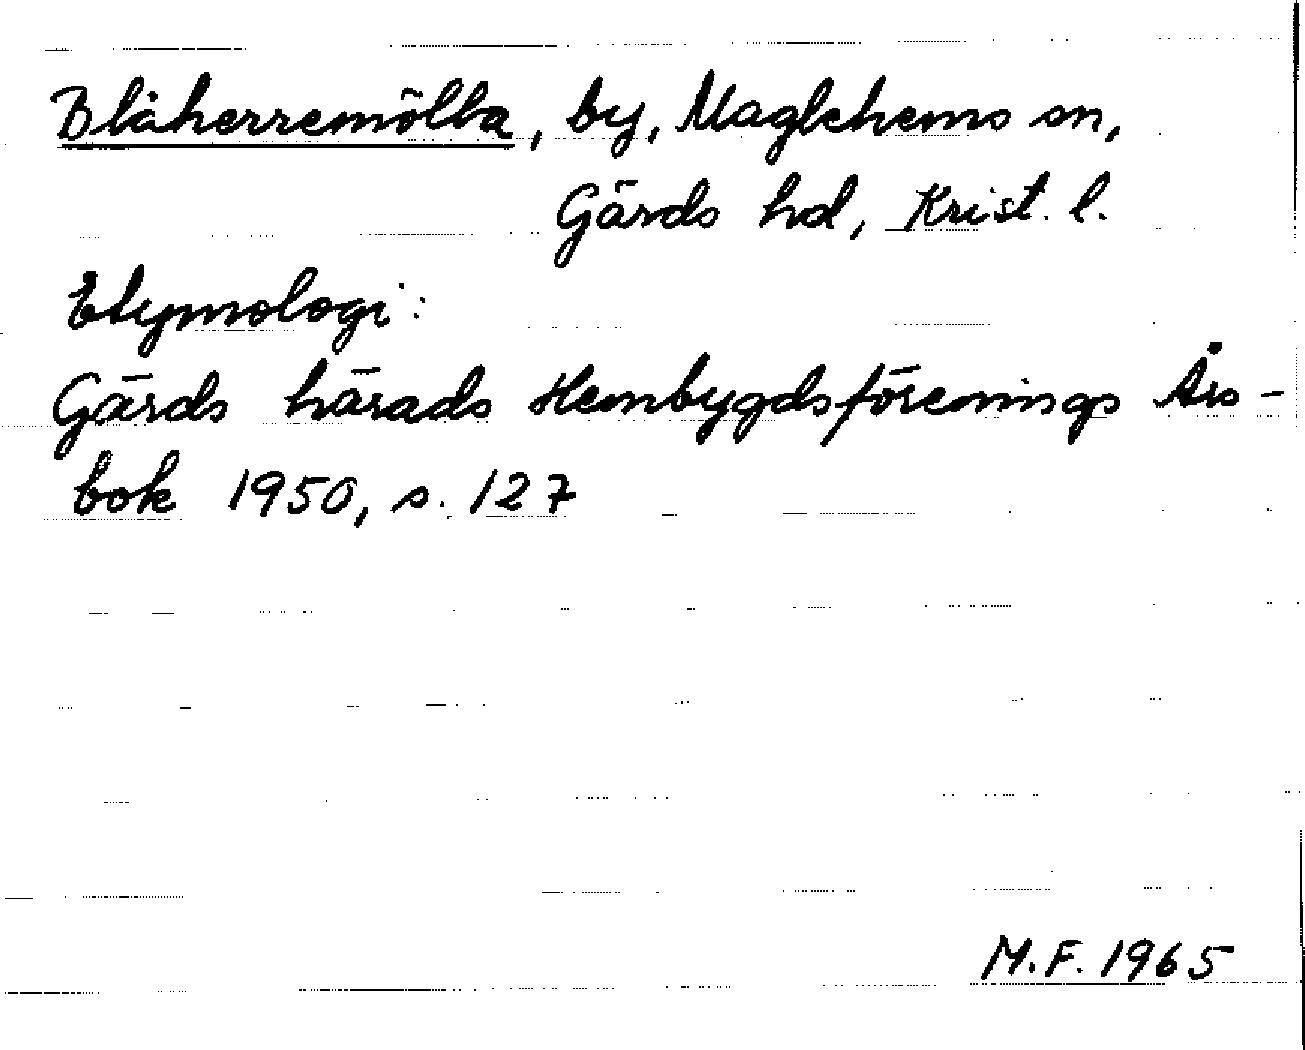 Blåherremölla, by, Maglehems sn,
Gärds hd, Krist. l.
Etymologi:
Gärds härads Hembygdsförenings Års-
bok 1950, s. 127
M.F. 1965